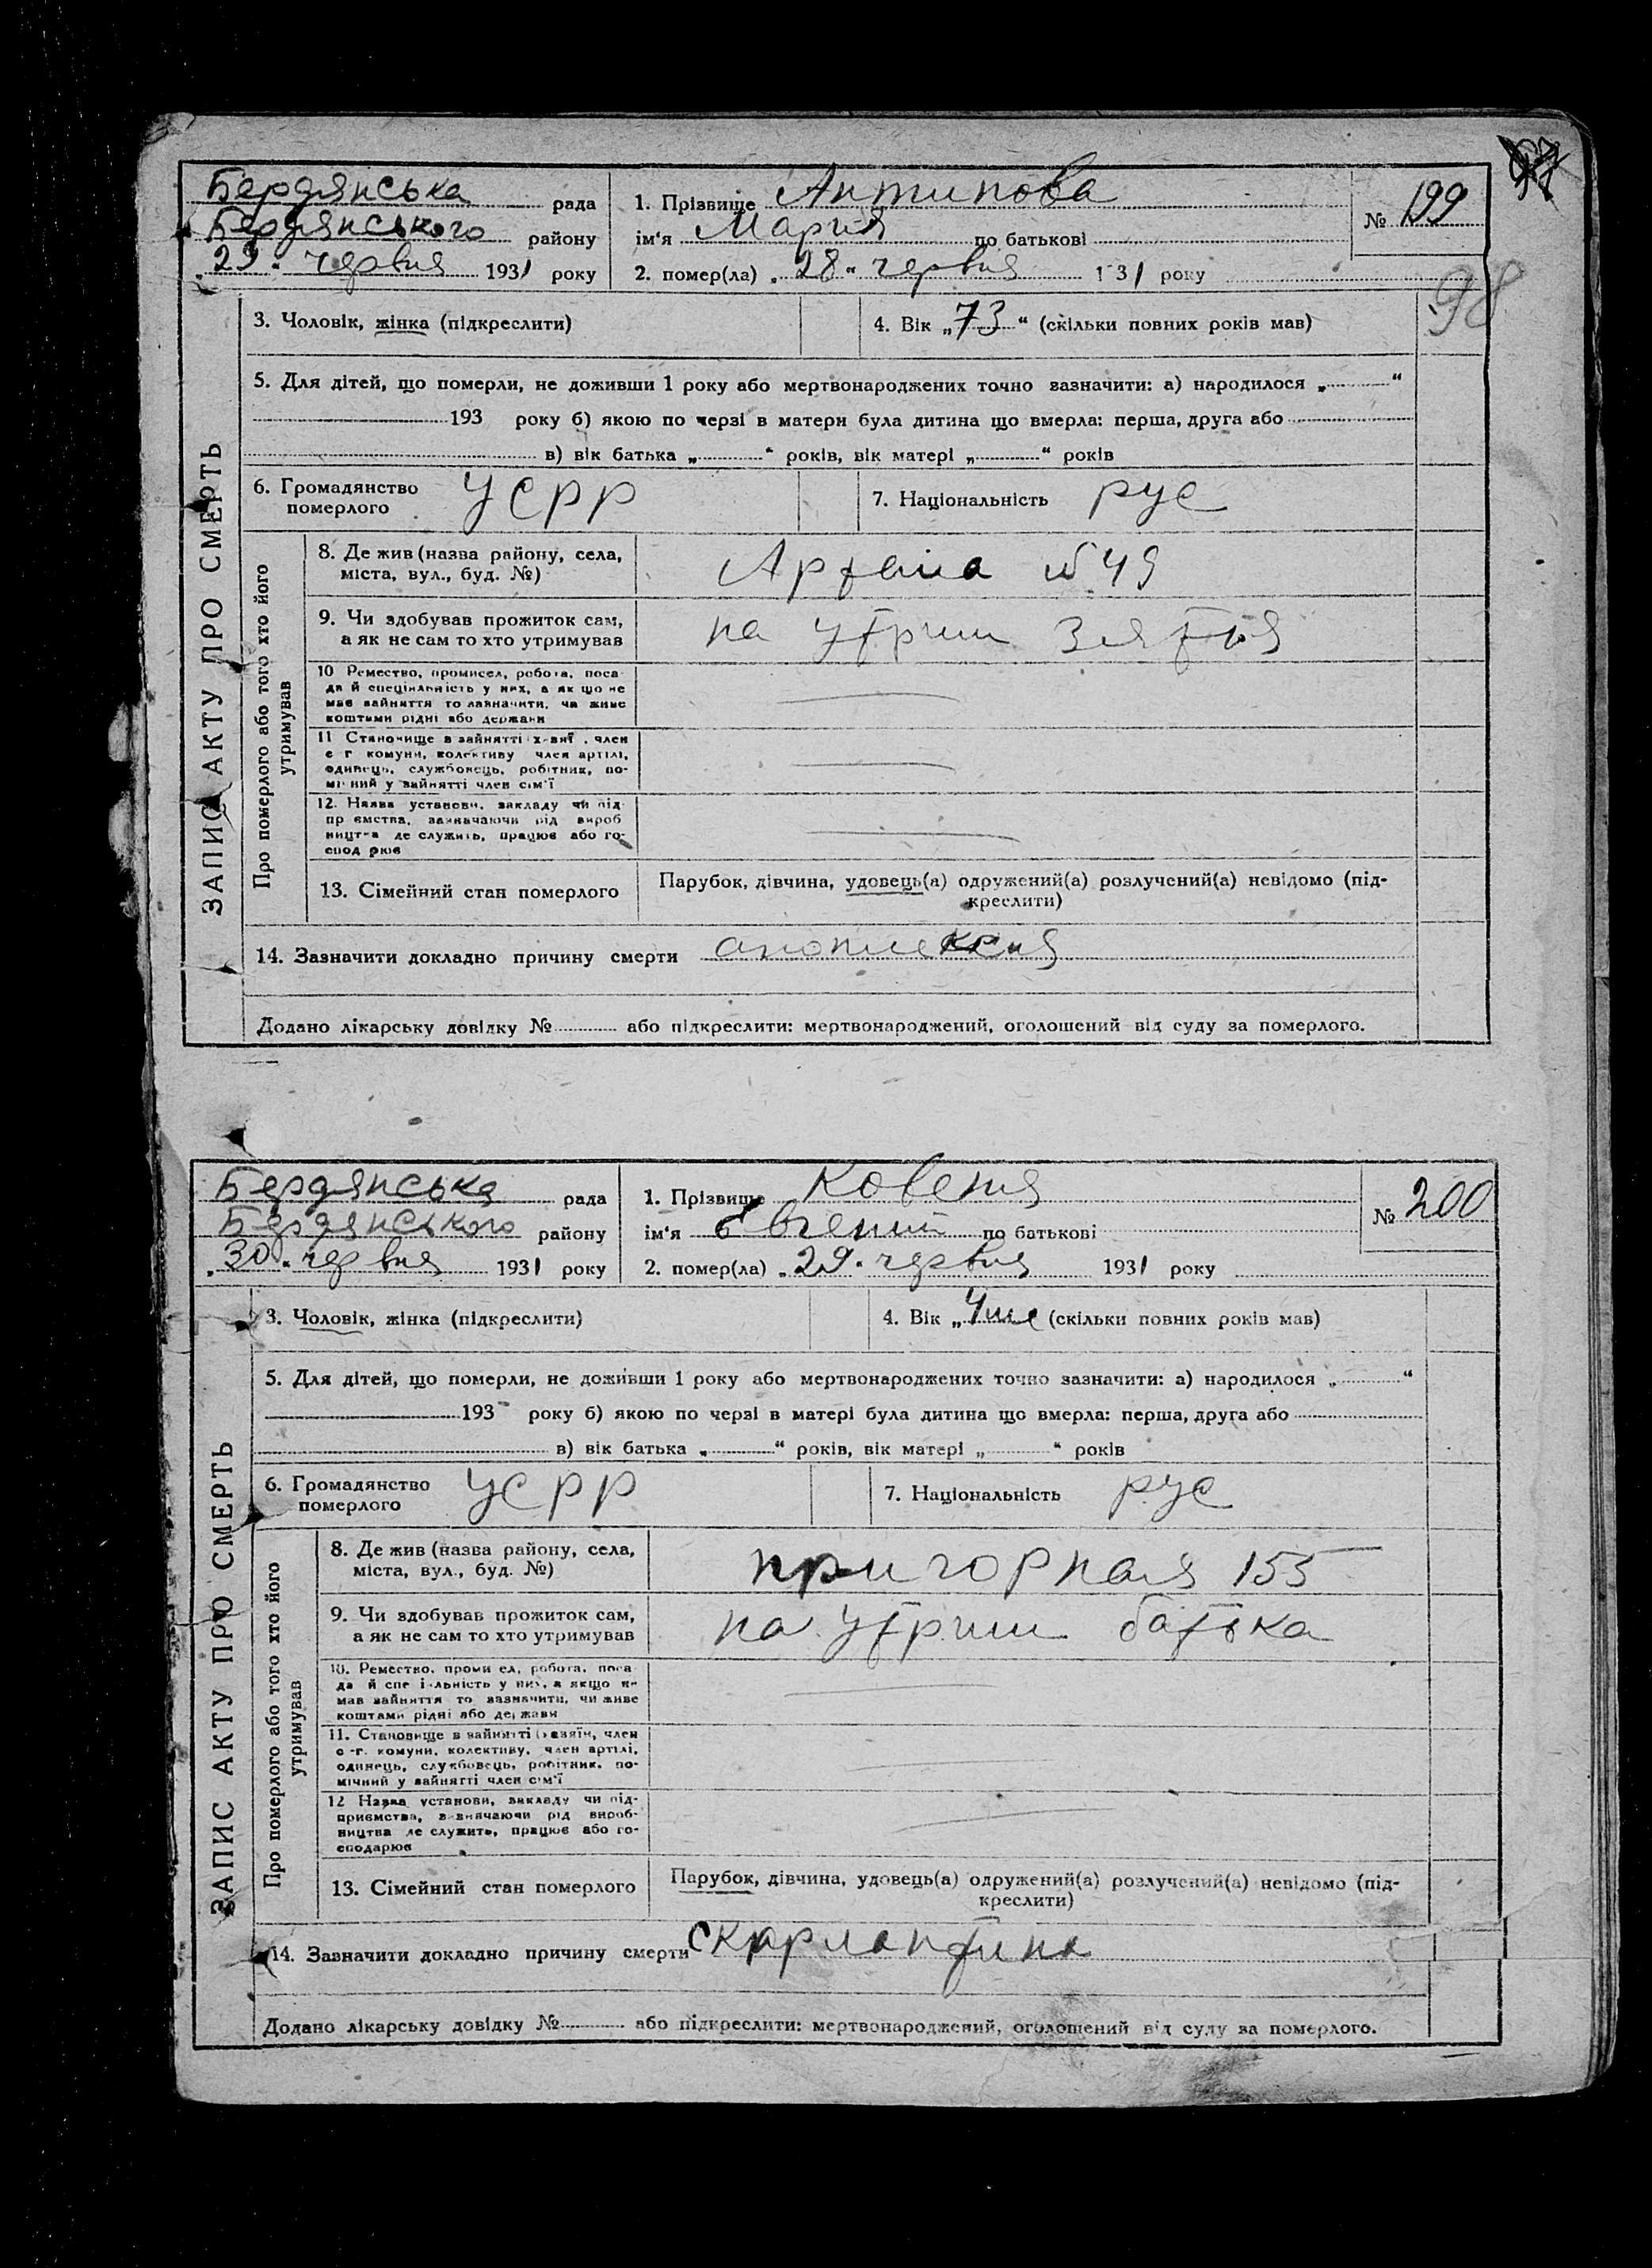 Бердянська рада
Бердянського району
„29“ червня 1931 року
1. Прізвище Антипова
ім'я Мария по батькові
2. помер(ла) „28“ червня 1 31 року
№ 199
98
3. Чоловік, жінка (підкреслити)
4. Вік „73“ (скільки повних років мав)
5. Для дітей, що померли, не доживши 1 року або мертвонароджених точно зазначити: а) народилося „ “
193 року б) якою по черзі в матери була дитина що вмерла: перша, друга або
в) вік батька „ “ років, вік матері „ “ років
6. Громадянство
померлого
УСРР
7. Національність рус
ЗАПИС АКТУ ПРО СМЕРТЬ
Про померлого або того хто його
утримував
8. Де жив (назва району, села,
міста, вул., буд. №)
№ 49
9. Чи здобував прожиток сам,
а як не сам то хто утримував
на утрим зятья
10 Ремество, промисел, робота, поса
да й спеціяльність у них, а як що не
має зайняття то зазначити, чи живе
коштами рідні або держави
11 Становище в зайнятті х-вяї , член
с г комуни, колективу член артілі,
одинець, службовець, робітник, по-
мі ний у зайнятті член сім'ї
12. Назва установи, закладу чи під
пр ємства, зазначаючи рід вироб
ництва де служить, працює або го-
спод рює
13. Сімейний стан померлого
Парубок, дівчина, удовець(а) одружений(а) розлучений(а) невідомо (під-
креслити)
14. Зазначити докладно причину смерти апоплексия
Додано лікарську довідку № або підкреслити: мертвонароджений, оголошений від суду за померлого.
Бердянська рада
Бердянського району
„30“ червня 1931 року
1. Прізвище Ковеня
ім'я Євгений по батькові
2. помер(ла) „29“ червня 1931 року
№ 200
3. Чоловік, жінка (підкреслити)
4. Вік „ (скільки повних років мав)
5. Для дітей, що померли, не доживши 1 року або мертвонароджених точно зазначити: а) народилося „ “
193 року б) якою по черзі в матері була дитина що вмерла: перша, друга або
в) вік батька „ “ років, вік матері „ “ років
6. Громадянство
померлого
УСРР
7. Національність рус
ЗАПИС АКТУ ПРО СМЕРТЬ
Про померлого або того хто його
утримував
8. Де жив (назва району, села,
міста, вул., буд. №)
пригорная 155
9. Чи здобував прожиток сам,
а як не сам то хто утримував
на утрим батька
10. Ремество, проми ел, робота, поса
да й спе і льність у них, а якщо не
має зайняття то зазначити, чи живе
коштами рідні або держави
11. Становище в зайнятті хазяїн, член
с -г. комуни, колективу, член артілі,
одинець, службовець, робітник, по-
мічний у зайнятті член сім'ї
12 Назва установи, закладу чи під-
приємства, зазначаючи рід вироб-
ництва де служить, працює або го-
сподарює
13. Сімейний стан померлого
Парубок, дівчина, удовець(а) одружений(а) розлучений(а) невідомо (під-
креслити)
14. Зазначити докладно причину смерти скарлантина
Додано лікарську довідку № або підкреслити: мертвонароджений, оголошений від суду за померлого.